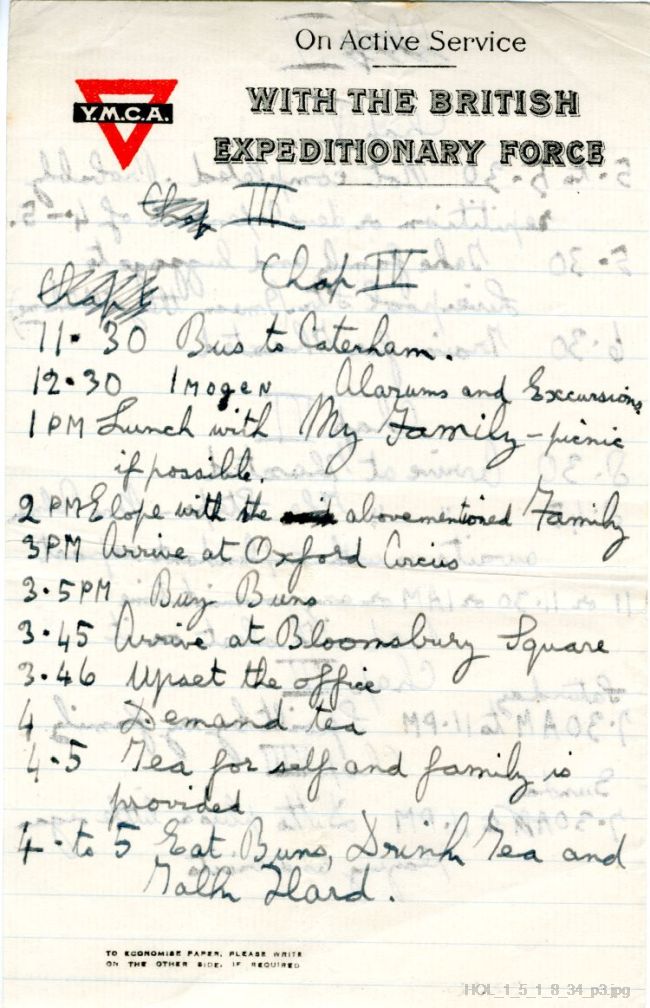 On Active Service
WITH THE BRITISH
EXPEDITIONARY FORCE
Y.M.C.A.
Chap III
Chap IV
Chap
11.30 Bus to Caterham.
12.30 Imogen Alarums and Excursions
1 PM Lunch with My Family - picnic
if possible.
2 PM Elope with the abovementioned Family
3 PM Arrive at Oxford Circus
3.5 PM Buy Buns
3.45 Arrive at Bloomsbury Square
3.46 Upset the office
4 Demand tea
4.5 Tea for self and family is
provided
4 - to 5 Eat Buns, Drink Tea and
Talk Hard.
TO ECONOMISE PAPER, PLEASE WRITE
ON THE OTHER SIDE, IF REQUIRED
HOL_1_5_1_8_34_p3.jpg